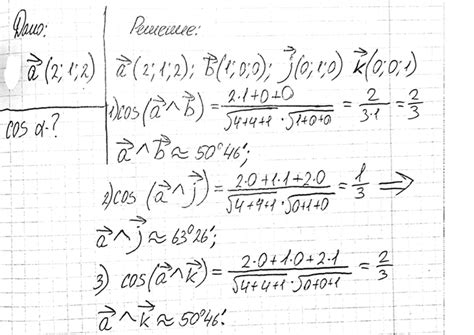 Дано:
a⃗(2;1;2)
cos α-?
Решение:
a⃗(2;1;2); b⃗(1;0;0); j⃗(0;1;0) k⃗(0;0;1)
1) cos(a⃗^b⃗) = (2·1+0+0)/(√(4+4+1)·√(1+0+0)) = 2/(3·1) = 2/3
a⃗^b⃗ ≈ 50°46′;
2) cos(a⃗^j⃗) = (2·0+1·1+2·0)/(√(4+4+1)·√(0+1+0)) = 1/3 ⟹
a⃗^j⃗ ≈ 63°26′;
3) cos(a⃗^k⃗) = (2·0+1·0+2·1)/(√(4+4+1)·√(0+0+1)) = 2/3
a⃗^k⃗ ≈ 50°46′.